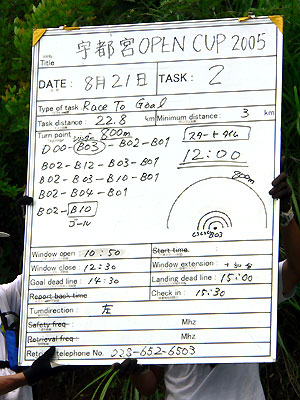 Title 宇都宮 OPEN CUP 2005
DATE: 8月21日 TASK: 2
Type of task Race To Goal
Task distance: 22.8 km Minimum distance: 3 km
Turn point 800m
D00-B03-B02-B01 スタートタイム
B02-B12-B03-B01 12:00
B02-B03-B10-B01 800m
B02-B04-B01
B02-B10
ゴール
B03
Window open: 10:50 Start time
Window close: 12:30 Window extension:
Goal dead line: 14:30 Landing dead line: 15:00
Report back time Check in: 15:30
Turndirection: 左
Safety freq: Mhz
Retrieval freq: Mhz
telephone No. 228-652-6503